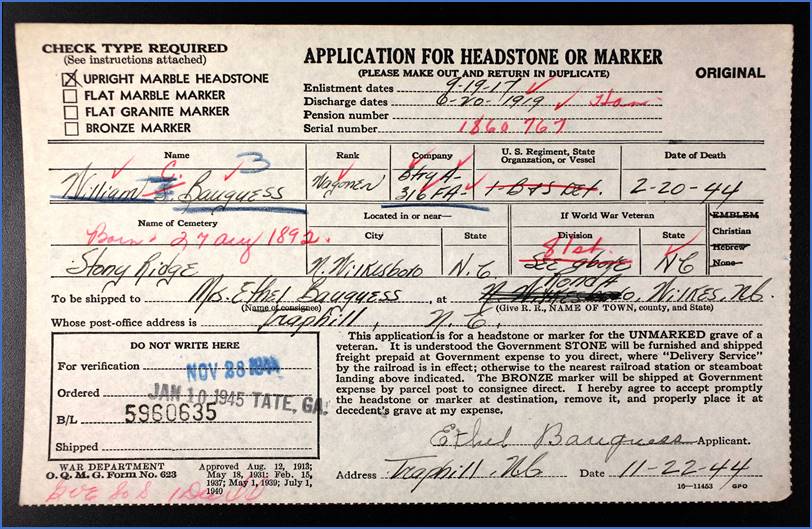 CHECK TYPE REQUIRED
(See instructions attached)
UPRIGHT MARBLE HEADSTONE
FLAT MARBLE MARKER
FLAT GRANITE MARKER
BRONZE MARKER
APPLICATION FOR HEADSTONE OR MARKER
(PLEASE MAKE OUT AND RETURN IN DUPLICATE)
ORIGINAL
Enlistment dates 9-19-17
Discharge dates 6-20-1919
Pension number
Serial number 1860 767
Name
Rank
Company
U. S. Regiment, State Organzation, or Vessel
Date of Death
William C. Bauguess B
Wagoner
Btry A- 316 FA-
2-20-44
Name of Cemetery
Located in or near—
City
State
If World War Veteran
Division
State
EMBLEM
Christian
Hebrew
None
Born 27 Aug 1892.
Stony Ridge
N. Wilkesboro
N.C.
81st.
See above
NC
To be shipped to Mrs. Ethel Bauguess, at Wilkes, N.C.
(Name of consignee)
(Give R. R., NAME OF TOWN, county, and State)
Whose post-office address is Traphill, N.C.
DO NOT WRITE HERE
For verification NOV 28 1944
Ordered JAN 10 1945 TATE, GA.
B/L 5960635
Shipped
This application is for a headstone or marker for the UNMARKED grave of a
veteran. It is understood the Government STONE will be furnished and shipped
freight prepaid at Government expense to you direct, where "Delivery Service"
by the railroad is in effect; otherwise to the nearest railroad station or steamboat
landing above indicated. The BRONZE marker will be shipped at Government
expense by parcel post to consignee direct. I hereby agree to accept promptly
the headstone or marker at destination, remove it, and properly place it at
decedent's grave at my expense.
Ethel Bauguess Applicant.
Address Traphill, NC Date 11-22-44
WAR DEPARTMENT
O. Q. M. G. Form No. 623
Approved Aug. 12, 1913;
May 18, 1931; Feb. 15,
1937; May 1, 1939; July 1,
1940
16—11453 GPO